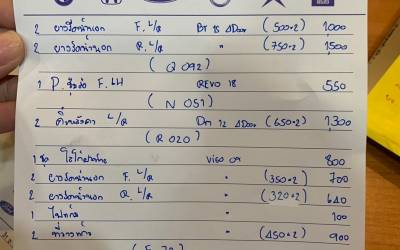 2 ยางรีดน้ำนอก F. L/R BT 15 4Door (500×2) 1000
2 ยางรีดน้ำนอก R. L/R " (750×2) 1500
(Q 092)
1 P. F. LH REVO 18 550
(N 051)
2 คิ้วหลังคา L/R Dm 12 4Door (650×2) 1,300
(R 020)
1 ชุด VIGO 09 800
2 ยางรีดน้ำนอก F. L/R " (350×2) 700
2 ยางรีดน้ำนอก R. L/R " (320×2) 640
1 " 100
2 " (450×2) 900